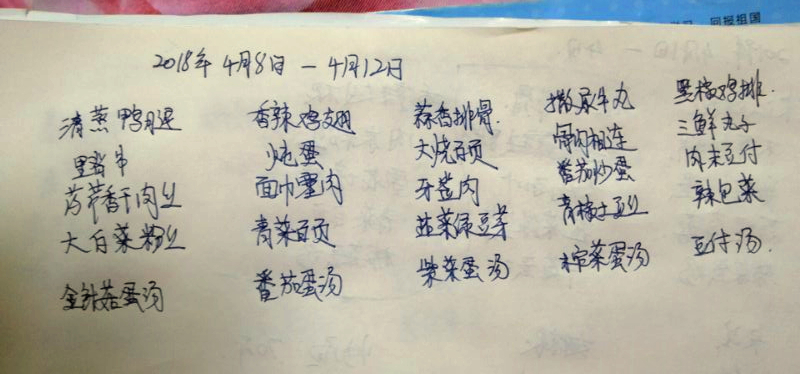 回报祖国
2018年4月8日 — 4月12日
清蒸鸭腿 香辣鸡翅 蒜香排骨 撒尿牛丸 黑椒鸡排
炖蛋 大烧百页 骨肉相连 三鲜丸子
芦芹香干肉丝 面巾塞肉 牙签肉 番茄炒蛋 肉末豆付
大白菜粉丝 青菜百页 韭菜绿豆芽 青椒土豆丝 辣包菜
金针菇蛋汤 番茄蛋汤 紫菜蛋汤 榨菜蛋汤 豆付汤